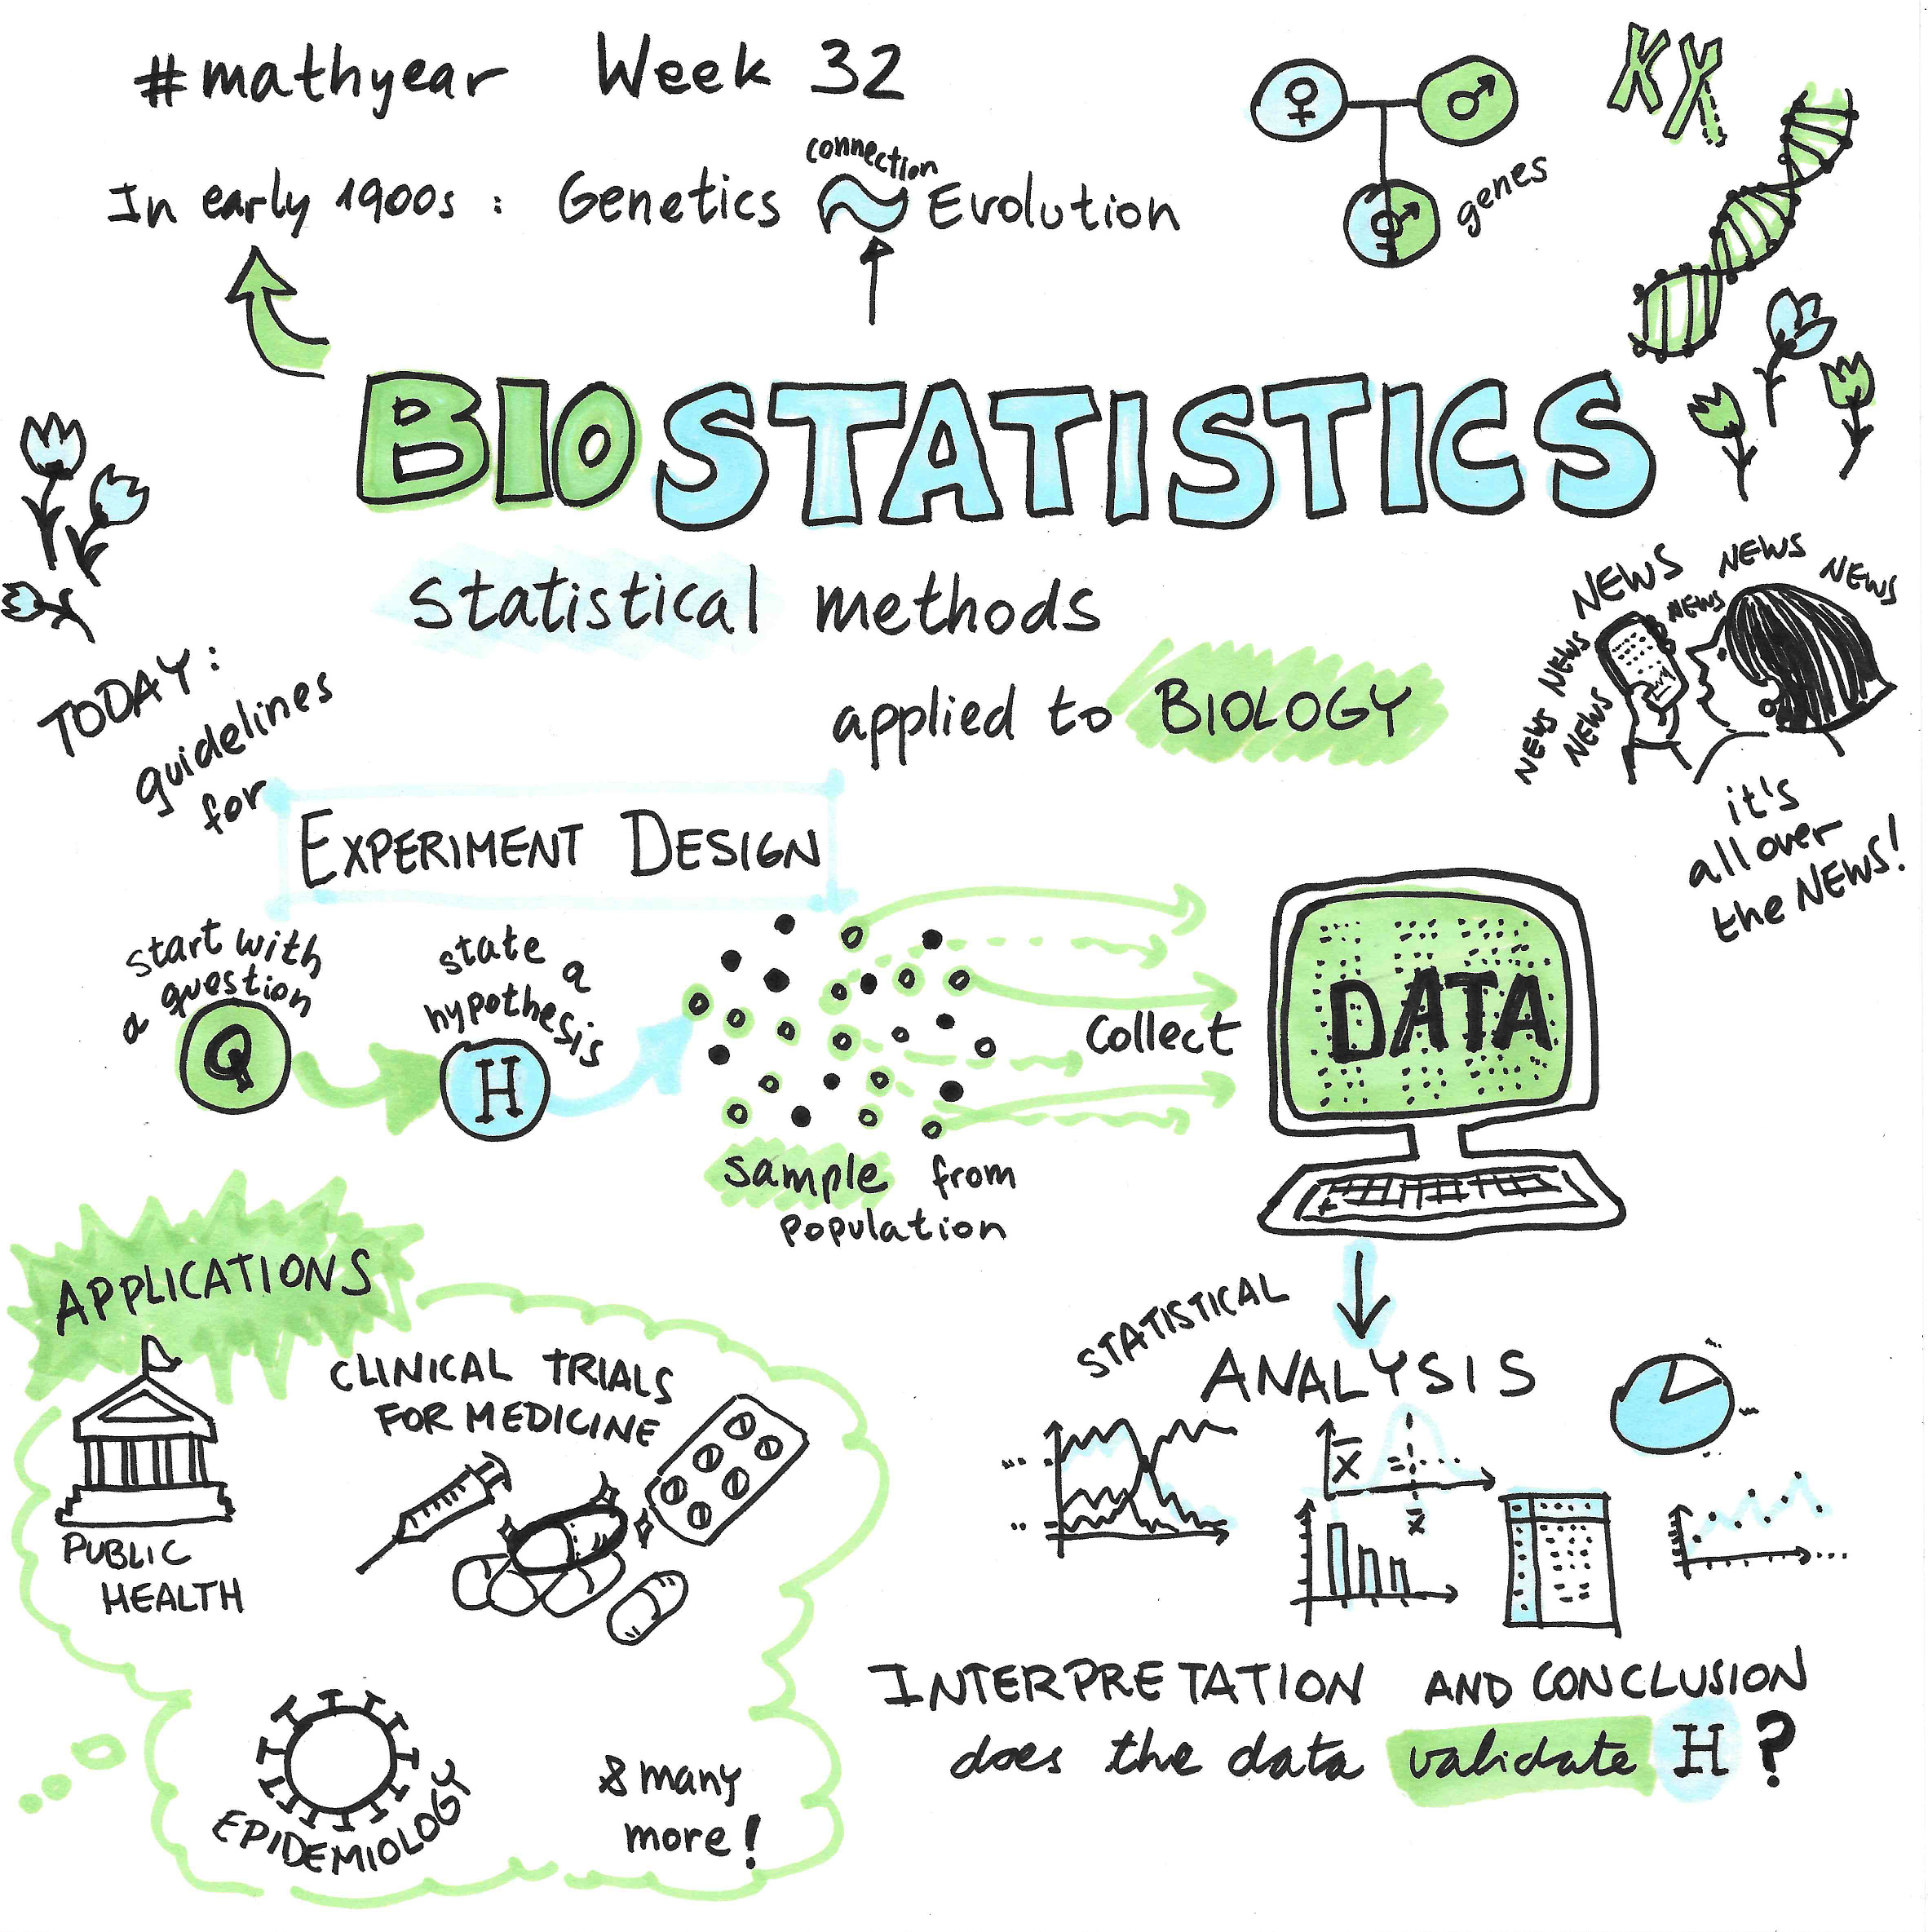 #mathyear Week 32
connection
In early 1900s : Genetics ~ Evolution
genes
BIOSTATISTICS
statistical methods
applied to BIOLOGY
NEWS
NEWS
NEWS
NEWS
NEWS
NEWS
NEWS
it's
all over
the NEWS!
TODAY:
guidelines
for
EXPERIMENT DESIGN
start with
a question
Q
state a
hypothesis
H
sample from
population
collect
DATA
STATISTICAL
ANALYSIS
x̄
x̄
INTERPRETATION AND CONCLUSION
does the data validate H ?
APPLICATIONS
PUBLIC
HEALTH
CLINICAL TRIALS
FOR MEDICINE
EPIDEMIOLOGY
& many
more!